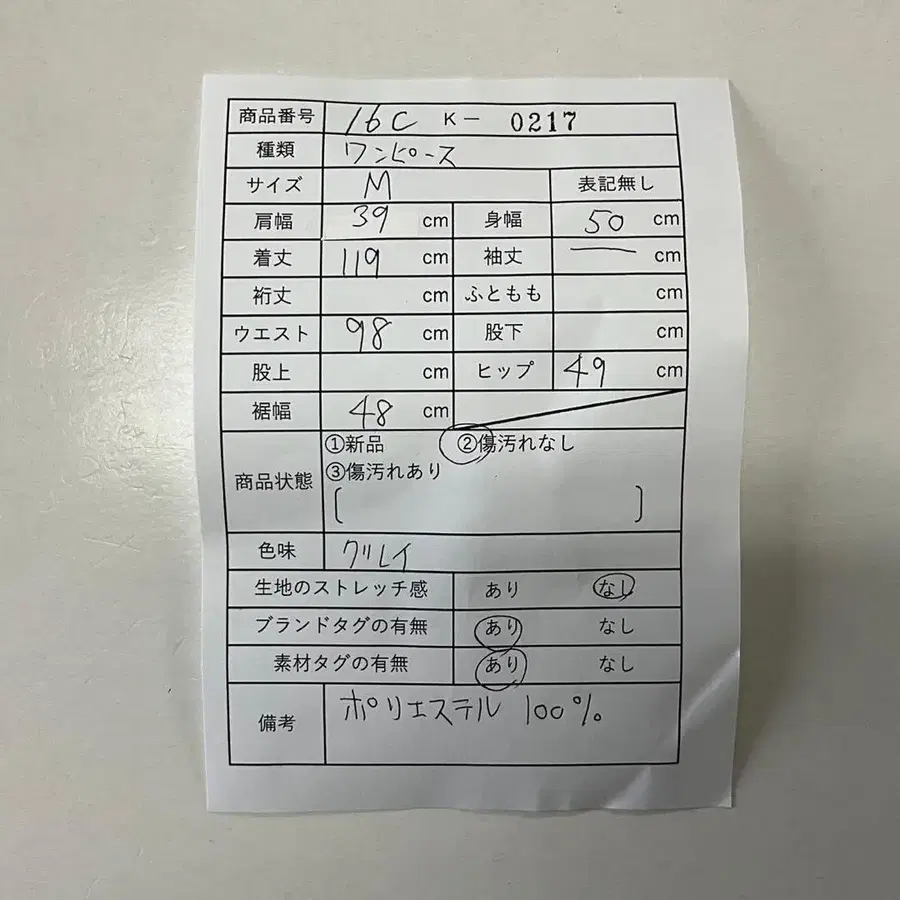 商品番号 16C K- 0217
種類 ワンピース
サイズ M 表記無し
肩幅 39 cm 身幅 50 cm
着丈 119 cm 袖丈 — cm
裄丈 cm ふともも cm
ウエスト 98 cm 股下 cm
股上 cm ヒップ 49 cm
裾幅 48 cm
①新品 ②傷汚れなし
③傷汚れあり
商品状態
[ ]
色味 グレイ
生地のストレッチ感 あり なし
ブランドタグの有無 あり なし
素材タグの有無 あり なし
備考 ポリエステル 100%